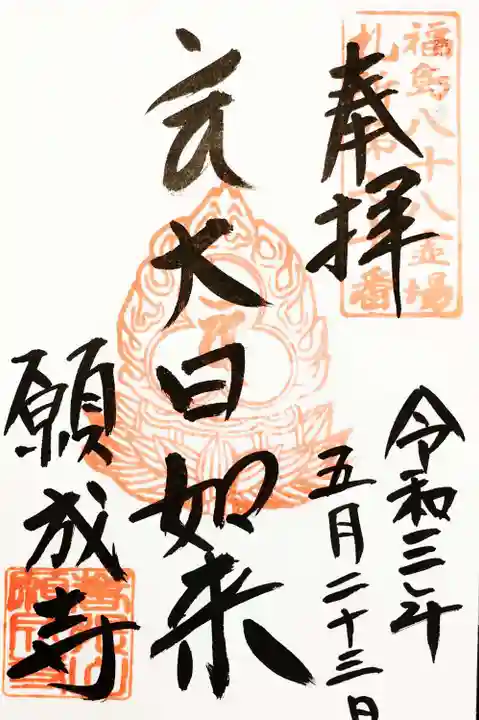 福島八十八霊場
奉拝
大日如来
願成寺
令和三年
五月二十三日